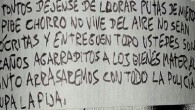 TONTOS DEJENSE DE LLORAR PUTAS DE M
PIBE CHORRO NO VIVE DEL AIRE NO SEAN
CRITAS Y ENTREGUEN TODO USTEDES
AÑOS AGARRADITOS A LOS BIENES MATER
NTO ARRASAREMOS CON TODO LA POLIC
UPA LA PIJA.